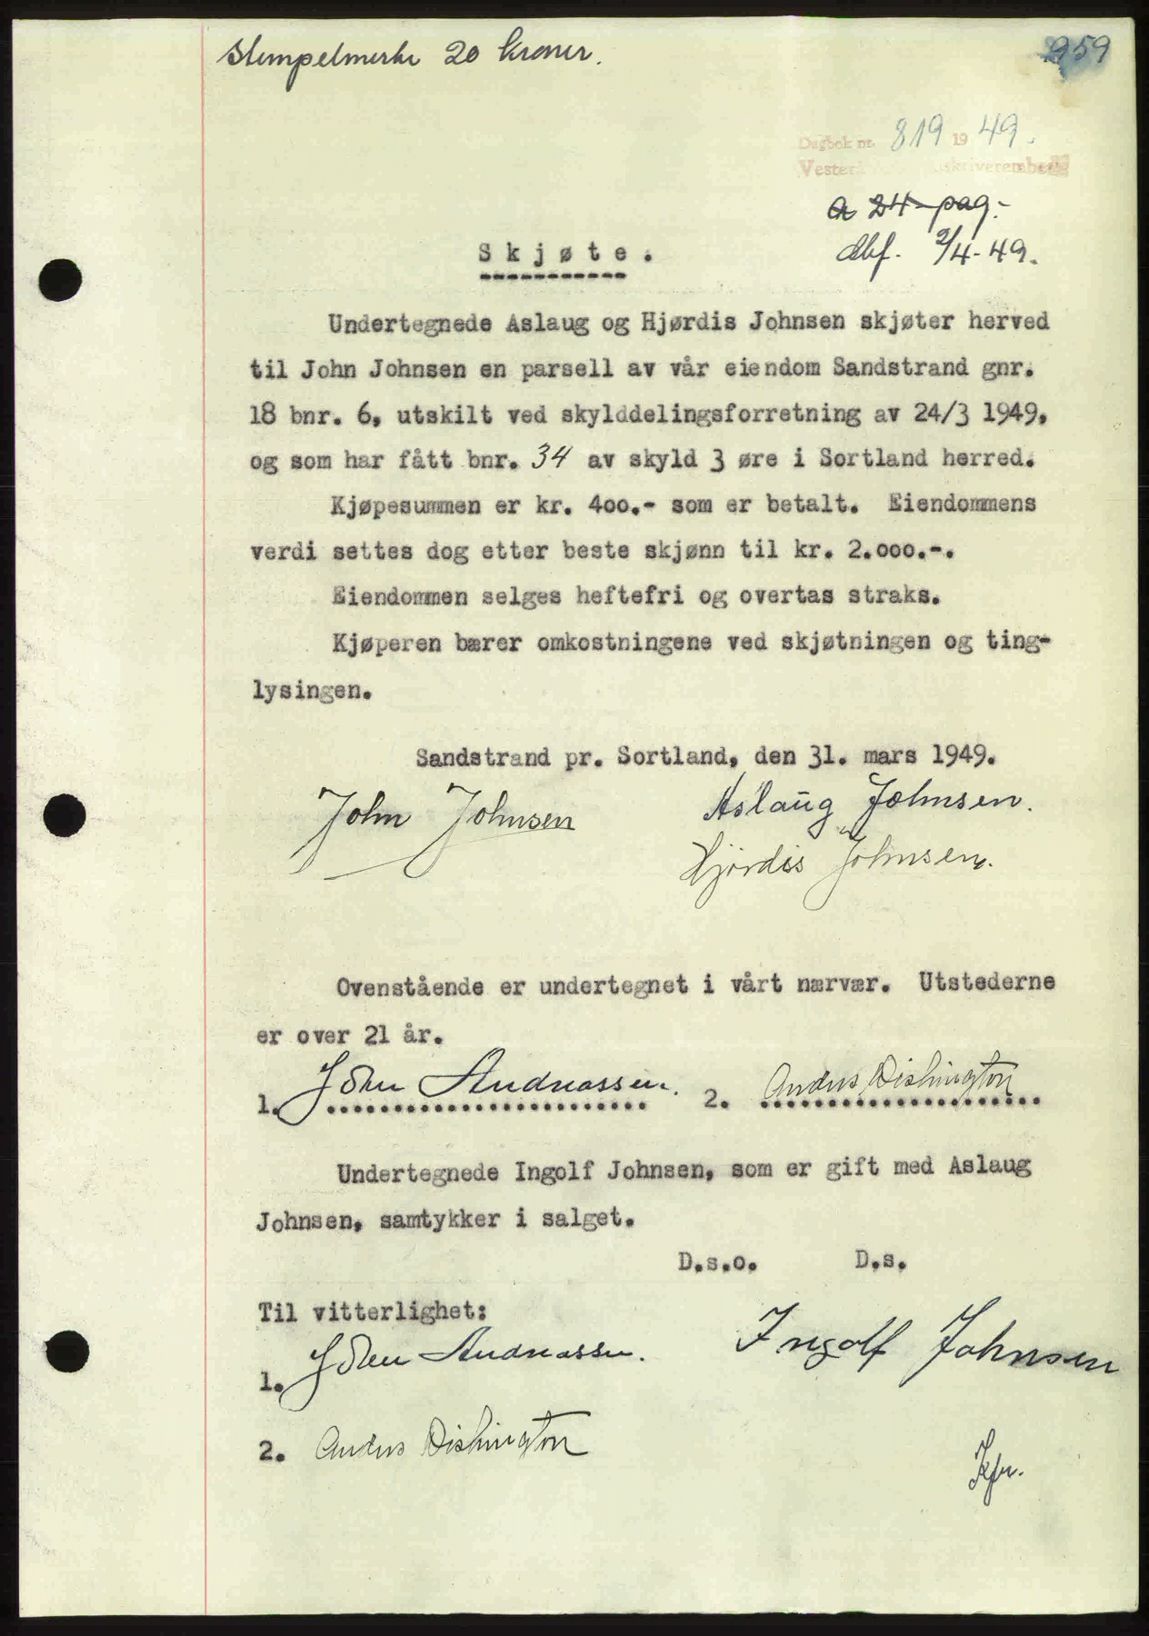 Stempelmerke 20 kroner.
959
Dagbok nr. 819 1949.
a 24 pag.
dbf. 2/4-49.
Skjøte.
Undertegnede Aslaug og Hjørdis Johnsen skjøter herved
til John Johnsen en parsell av vår eiendom Sandstrand gnr.
18 bnr. 6, utskilt ved skylddelingsforretning av 24/3 1949,
og som har fått bnr. 34 av skyld 3 øre i Sortland herred.
Kjøpesummen er kr. 400.- som er betalt. Eiendommens
verdi settes dog etter beste skjønn til kr. 2.000.-.
Eiendommen selges heftefri og overtas straks.
Kjøperen bærer omkostningene ved skjøtningen og ting-
lysingen.
Sandstrand pr. Sortland, den 31. mars 1949.
John Johnsen Aslaug Johnsen.
Hjördis Johnsen.
Ovenstående er undertegnet i vårt nærvær. Utstederne
er over 21 år.
1. John Andreassen. 2. Anders Dishington
Undertegnede Ingolf Johnsen, som er gift med Aslaug
Johnsen, samtykker i salget.
D.s.o. D.s.
Til vitterlighet:
1. John Andreassen. Ingolf Johnsen
2. Anders Dishington